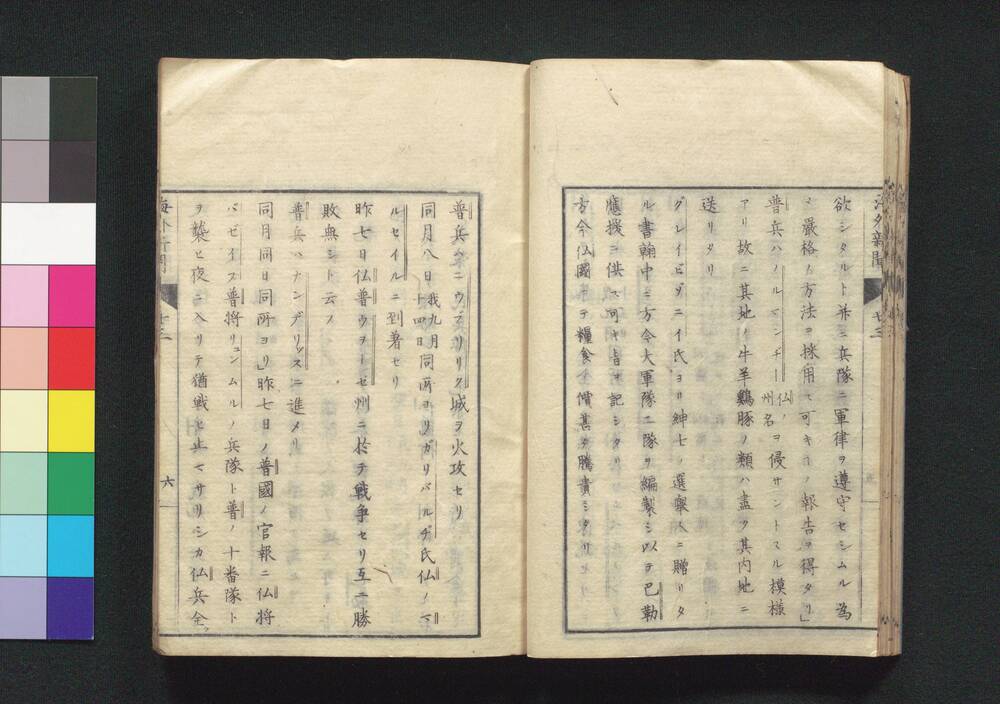 海外新聞
廿三
欲シタルト并ニ兵隊ニ軍律ヲ遵守セシムル為
メ嚴格ノ方法ヲ採用ス可キトノ報告ヲ得タリ」
普兵ハノルマンヂー仏ノ州名ヲ侵サントスル模様
アリ故ニ其地ノ牛羊鶏豚ノ類ハ盡ク其内地ニ
送リタリ
グレイビゾニイ氏ヨリ紳士ノ選擧人ニ贈リタ
ル書翰中ニ方今大軍隊二隊ヲ編製シ以テ巴勒
應援ニ供ス可キ旨ヲ記シタリ
方今仏國ニテ糧食ノ價甚タ騰貴シタリ
普兵ハニウブリサク城ヲ火攻セリ
同月八日我九月十四日同所ヨリガリバルヂ氏仏ノマ
ルセイルニ到着セリ
昨七日仏普ウヲーゼ州ニ於テ戦争セリ互ニ勝
敗無シト云フ
普兵ハナンデリッスニ進メリ
同月同日同所ヨリ」昨七日ノ普國ノ官報ニ仏将
バゼイヌ普将リュンムルノ兵隊ト普ノ十番隊ト
ヲ襲ヒ夜ニ入リテ猶戦ヒ止マサリシカ仏兵全
海外新聞
廿三
六